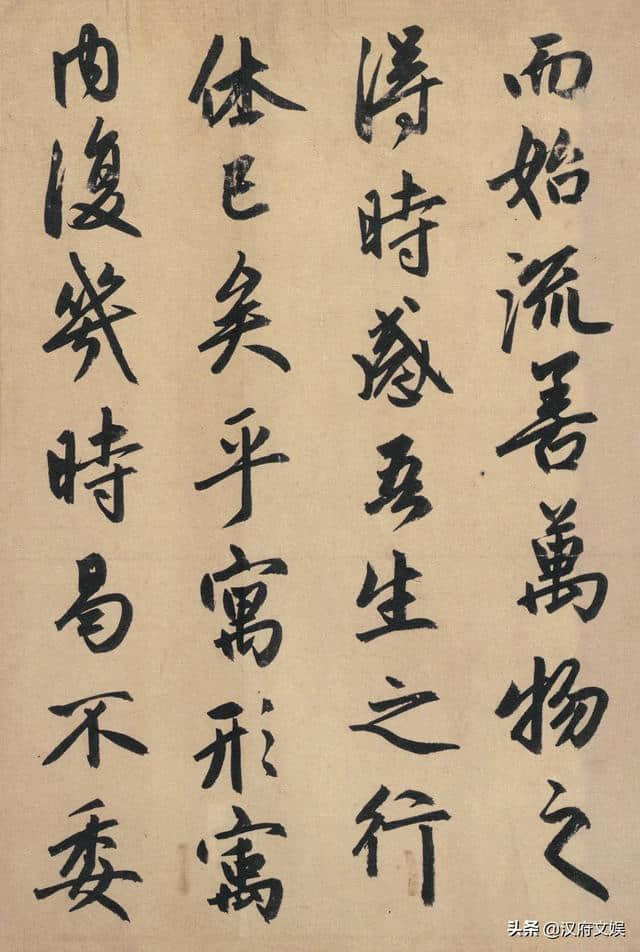 而始流善萬物之
得時感吾生之行
休已矣乎寓形寓
内復幾時曷不委
头条 @汉府文娱